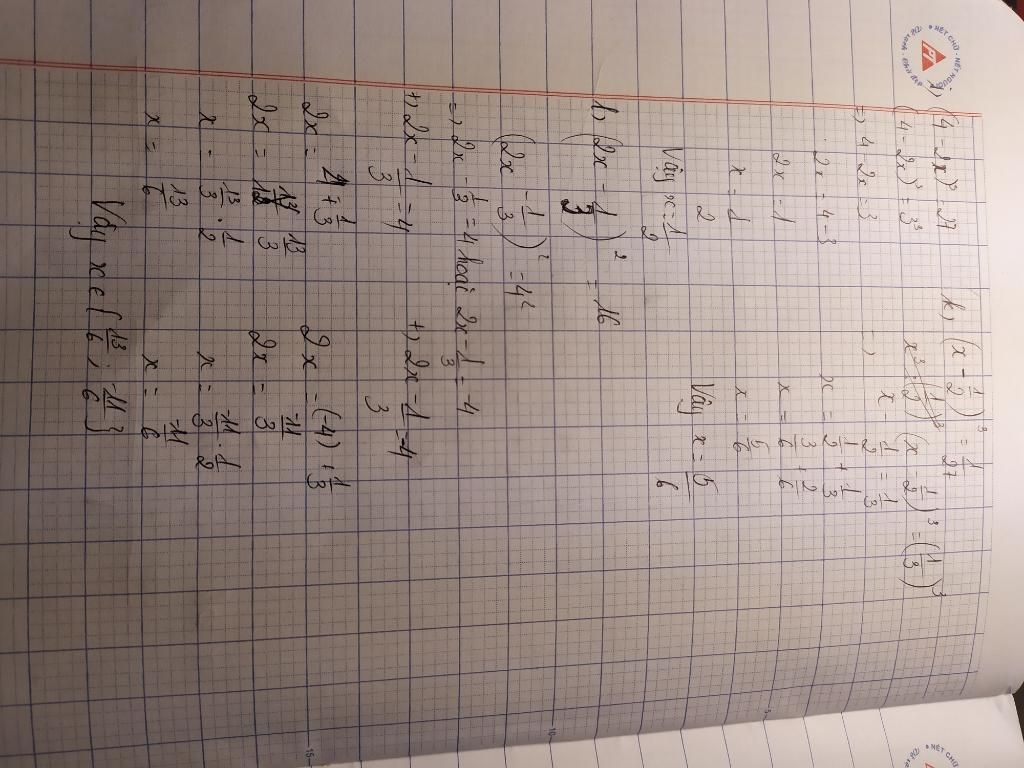 (4 - 2x)³ = 27
(4 - 2x)³ = 3³
=> 4 - 2x = 3
2x = 4 - 3
2x = 1
x = 1/2
Vậy x = 1/2
b, (x - 1/2)³ = 1/27
(x - 1/2)³ = (1/3)³
=> x - 1/2 = 1/3
x = 1/2 + 1/3
x = 3/6 + 2/6
x = 5/6
Vậy x = 5/6
b, (2x - 1/3)² = 16
(2x - 1/3)² = 4²
=> 2x - 1/3 = 4 hoặc 2x - 1/3 = -4
+) 2x - 1/3 = 4
2x = 4 + 1/3
2x = 13/3
x = 13/3 . 1/2
x = 13/6
+) 2x - 1/3 = -4
2x = (-4) + 1/3
2x = -11/3
x = -11/3 . 1/2
x = -11/6
Vậy x ∈ { 13/6 ; -11/6 }
NÉT CHỮ - NÉT NGƯỜI
10
15
NÉT CHỮ